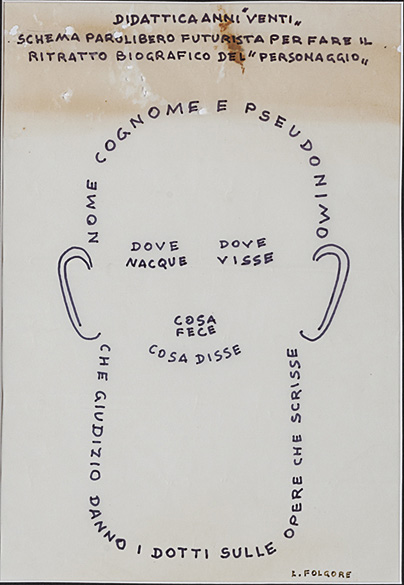 DIDATTICA ANNI "VENTI"
SCHEMA PAROLIBERO FUTURISTA PER FARE IL
RITRATTO BIOGRAFICO DEL "PERSONAGGIO"
NOME COGNOME E PSEUDONIMO
DOVE NACQUE
DOVE VISSE
COSA FECE
COSA DISSE
CHE GIUDIZIO DANNO I DOTTI SULLE OPERE CHE SCRISSE
L. FOLGORE